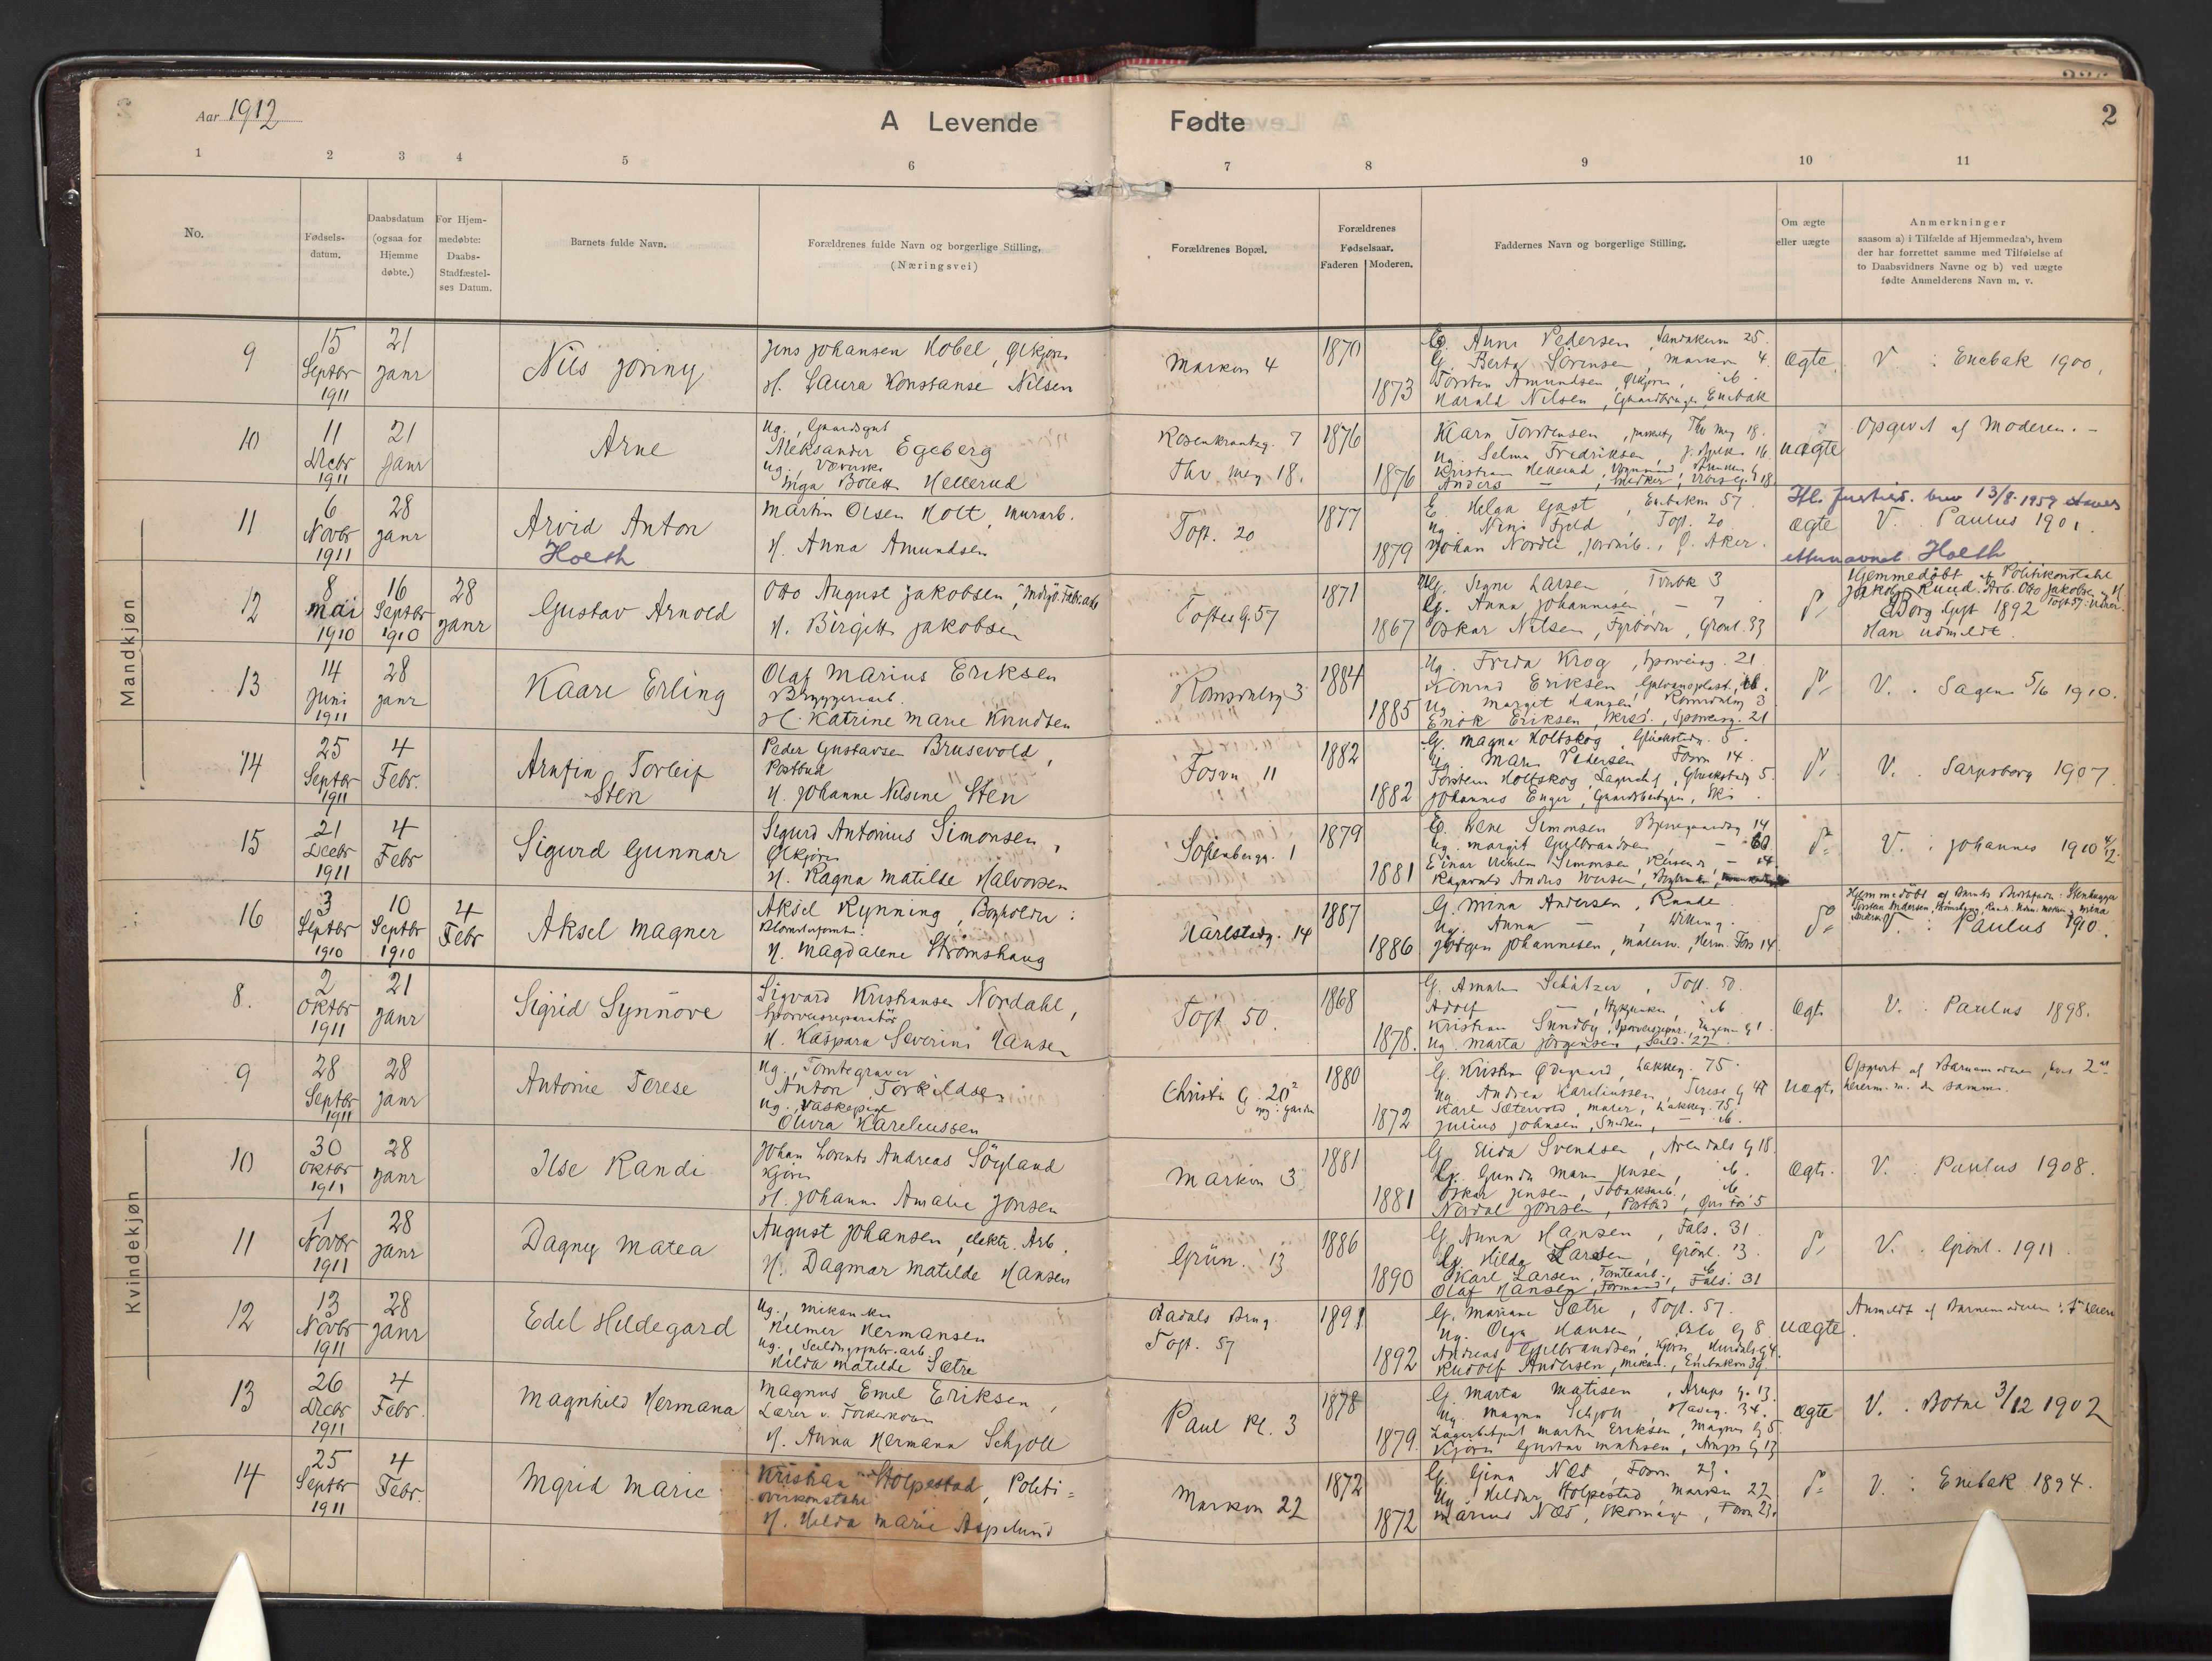 Aar 1912
A Levende Fødte
2
1 2 3 4 5 6 7 8 9 10 11
No.
Fødsels-
datum.
Daabsdatum
(ogsaa for
Hjemme
døbte.)
For Hjem-
medøbte:
Daabs-
Stadfæstel-
ses Datum.
Barnets fulde Navn.
Forældrenes fulde Navn og borgerlige Stilling,
(Næringsvei)
Forældrenes Bopæl.
Forældrenes
Fødselsaar.
Faderen Moderen.
Faddernes Navn og borgerlige Stilling.
Om ægte
eller uægte
Anmerkninger
saasom a) i Tilfælde af Hjemmedaab, hvem
der har forrettet samme med Tilføielse af
to Daabsvidners Navne og b) ved uægte
fødte Anmelderens Navn m. v.
Mandkjøn
9
15
Septbr
1911
21
Janr
Nils
Jens Johansen Kobel, Ølkjører
H. Laura Konstanse Nilsen
Markvn 4
1870
1873
G. Anne Pedersen, Sandakervn 25.
G. Berta Sörensen, Markvn 4.
Torsten Amundsen, Ølkjører, ib.
Harald Nilsen, Gaardbruger, Enebak
ægte
V. : Enebak 1900.
10
11
Decbr
1911
21
Janr
Arne
Ug., Gaardsgut
Aleksander Egeberg
Ug., Væverske
Inga Bolette Hellerud
Rosenkrantzg. 7
Thv. Mey. 18.
1876
1876
Karn Torstensen, Thv Mey 18.
Ug. Selma Fredriksen
Kristian Hellerud
Anders
uægte
Opgivet af Moderen. -
11
6
Novbr
1911
28
Janr
Arvid Anton
Holth
Martin Olsen Holt, Murarb.
H. Anna Amundsen
Toft. 20
1877
1879
E. Helga Gast, Enebakvn 57.
Ug. Fjeld Toft. 20
Johan Nordli, Jordarb., Ö. Aker.
ægte
Ifl. Justisd. brev 13/8. 1959
V. Paulus 1901.
etternavnet Holth
12
8
Mai
1910
16
Septbr
1910
28
Janr
Gustav Arnold
Otto August Jakobsen,
H. Birgitte Jakobsen
Toftes G. 57
1871
1867
Ug. Signe Larsen, Torvbk 3
G. Anna Johannesen, — 7
Oskar Nilsen, Fyrböder, Grønl. 33
do
Hjemmedøbt af Politikonstabel
Jakob Ruud. Arb. Otto Jakobsen
Borg. Gift 1892
Han udmeldt.
13
14
Juni
1911
28
Janr
Kaare Erling
Olaf Marius Eriksen
Bryggeriarb.
H. Katrine Marie Knudsen
Romsdalsg 3
1884
1885
Ug. Frida Krog, Sporveisg. 21.
Konrad Eriksen, Galvanoplast., ib.
Ug Margit Hansen, Romsdalsg 3
Enok Eriksen, Sporveisg. 21
do
V. : Sagene 5/6 1910.
14
25
Septbr
1911
4
Febr.
Arnfin Torleif
Sten
Peder Gustavsen Brusevold,
Postbud
H. Johanne Nilsine Sten
Fosvn 11
1882
1882
G. Magna Holtskog, Glückstadg. 5.
Ug. Marie Pedersen Fosvn 14.
Torstein Holtskog, Lagerchef, Glückstadg 5.
Johannes Enger, Gaardbestyrer, Ski.
do
V. : Sarpsborg 1907.
15
21
Decbr
1911
4
Febr
Sigurd Gunnar
Sigurd Antonius Simonsen,
Ølkjører
H. Ragna Matilde Halvorsen
Sofienbergg. 1
1879
1881
E. Lene Simonsen Bjerregaardsg 14
Ug. Margit Gulbrandsen, — 60
Einar Simonsen
Ragnvald
do
V. : Johannes 1910 4/12.
16
3
Septbr
1910
10
Septbr
1910
4
Febr
Aksel Magner
Aksel Rynning, Bogholder i
H. Magdalene Strømshaug
Karlstadg. 14
1887
1886
G. Mina Andersen, Raade.
Ug. Anna
Jørgen Johannesen, Malersv., Herm. Foss 14
do
Hjemmedøbt af
V. : Paulus 1910.
Kvindekjøn
8.
2
Oktbr
1911
21
Janr
Sigrid Synnöve
Sigvard Kristiansen Nordahl,
Sporveisreparatör
H. Kaspara Severine Hansen
Toft 50.
1868
1878.
G. Amalie Schützer, Toft. 50.
Adolf — ib
Kristian Sundby, Sporveisrepar., Eugenies G 1.
Ug. Marta Jørgensen, Seild. 22
ægte
V. : Paulus 1898.
9
28
Septbr
1911
28
Janr
Antonie Terese
Ug., Tomtegraver
Anton Torkildsen
Ug., Vaskepige
Olivia Kareliussen
Christies G. 20²
opg. i gaarden
1880
1872
G. Kristin Ødegaard, Lakkeg. 75.
Ug. Andrea Kareliussen, Teresesg 48
Karl Sæterwold, Maler, Lakkeg. 75.
Julius Johnsen, Snedker, — ib.
uægte
Opgivet af Barnemoderen, hvis 2det
leierm. m. den samme.
10
30
Oktbr
1911
28
Janr
Ilse Randi
Johan Lorents Andreas Söyland
Kjører
H. Johanne Amalie Jonsen
Markvn 3
1881
1881
G. Elida Svendsen, Arendals G 18.
G. Gunda Marie Jensen, ib.
Oskar Jensen, Tobaksarb., ib
Nordal Jonsen, Postbud, Øvre Fos 5
ægte.
V. : Paulus 1908.
11
1
Novbr
1911
28
Janr
Dagny Matea
August Johansen, elektr. Arb.
H. Dagmar Matilde Hansen
Grün. 13
1886
1890
G. Anna Hansen, Fals. 31
Ug. Hilda Larsen, Grönl. 13.
Karl Larsen, Tomtearb., ib
Olaf Hansen, Formand, Fals. 31
do
V. : Grønl. 1911.
12
13
Novbr
1911
28
Janr
Edel Hildegard
Ug., Mekaniker
Hilmer Hermansen
Ug., Seildugsfabr.arb.
Hilda Matilde Sætre
Aadals Brug
Toft. 57
1891
1892
G. Mariane Sætre, Toft. 57.
Ug. Olga Hansen, Oslo G 8
Andreas Gulbrandsen, Kjører, Hurdalsg 4.
Rudolf Andersen, Mekan., Enebakvn 39.
uægte
Anmeldt af Barnemoderen: 1ste leierm
13
26
Decbr
1911
4
Febr.
Magnhild Hermana
Magnus Emil Eriksen,
Lærer v.
H. Anna Hermana Schjoll
Paul Pl. 3
1878
1879.
G. Marta Matisen, Arups G. 13
Ug. Magna Schjoll, Haveg. 34.
Lagerbetjent Martin Eriksen, Magnus G 5
Kjører Gustav Matisen, Arups G 13
ægte
V. : Botne 3/12 1902
14
25
Septbr
1911
4
Febr.
Ingrid Marie
Kristian Stolpestad, Politi=
overkonstabel
H. Hilda Marie Aspelund
Markvn 22
1872
1872
G. Gina Næs, Fosvn 23.
Ug. Hildur Stolpestad, Markvn 22
Marius Næs, Skomager, Fosvn 23.
do
V. : Enebak 1894.